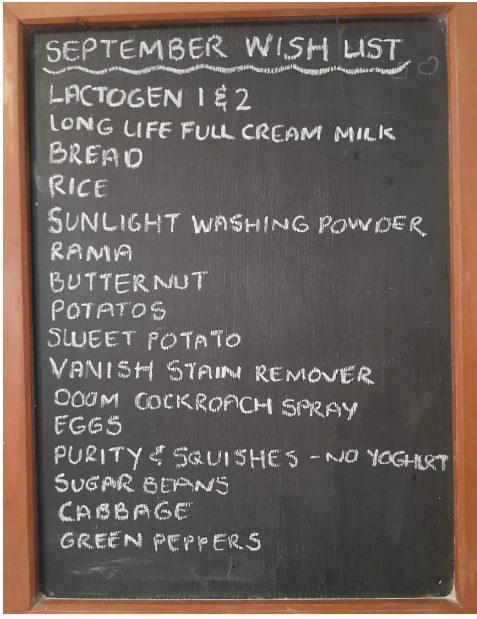 SEPTEMBER WISH LIST
LACTOGEN 1 & 2
LONG LIFE FULL CREAM MILK
BREAD
RICE
SUNLIGHT WASHING POWDER
RAMA
BUTTERNUT
POTATOS
SWEET POTATO
VANISH STAIN REMOVER
DOOM COCKROACH SPRAY
EGGS
PURITY & SQUISHES - NO YOGHURT
SUGAR BEANS
CABBAGE
GREEN PEPPERS